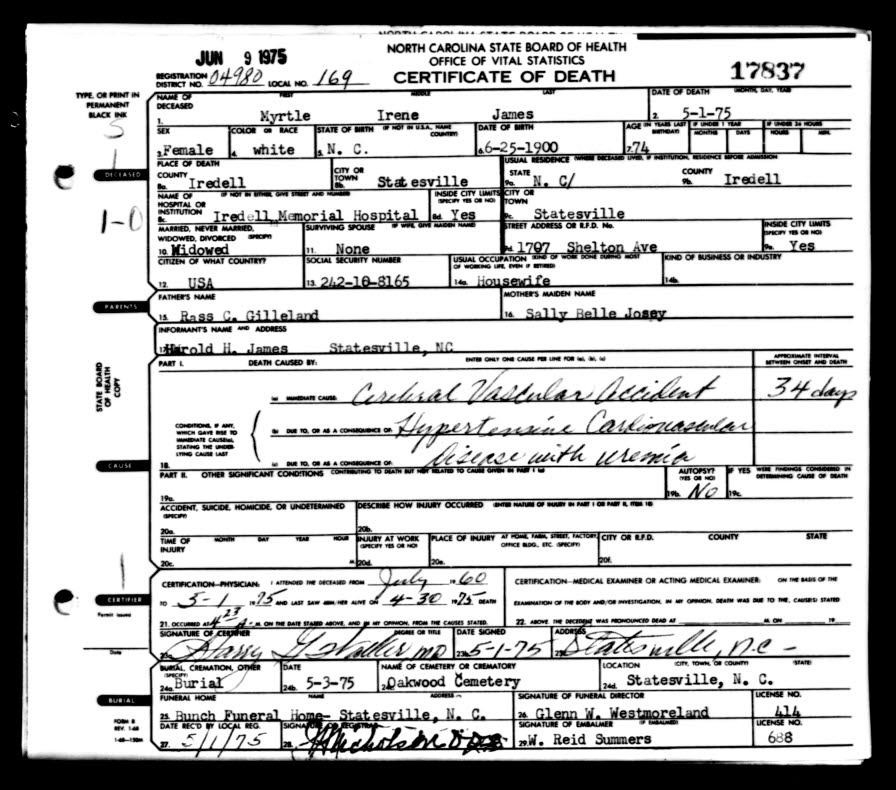 JUN 9 1975
NORTH CAROLINA STATE BOARD OF HEALTH
OFFICE OF VITAL STATISTICS
CERTIFICATE OF DEATH
17837
REGISTRATION DISTRICT NO. 04980 LOCAL NO. 169
TYPE, OR PRINT IN PERMANENT BLACK INK
NAME OF DECEASED FIRST MIDDLE LAST DATE OF DEATH (MONTH, DAY, YEAR)
1. Myrtle Irene James 2. 5-1-75
SEX COLOR OR RACE STATE OF BIRTH (IF NOT IN U.S.A., NAME COUNTRY) DATE OF BIRTH AGE (IN YEARS LAST BIRTHDAY) IF UNDER 1 YEAR MONTHS DAYS IF UNDER 24 HOURS HOURS MIN.
3. Female 4. white 5. N. C. 6. 6-25-1900 7. 74
DECEASED
PLACE OF DEATH USUAL RESIDENCE (WHERE DECEASED LIVED, IF INSTITUTION, RESIDENCE BEFORE ADMISSION)
COUNTY CITY OR TOWN STATE COUNTY
8a. Iredell 8b. Statesville 9a. N. C/ 9b. Iredell
1-0
NAME OF HOSPITAL OR INSTITUTION (IF NOT IN EITHER, GIVE STREET AND NUMBER) INSIDE CITY LIMITS (SPECIFY YES OR NO) CITY OR TOWN
8c. Iredell Memorial Hospital 8d. Yes 9c. Statesville
MARRIED, NEVER MARRIED, WIDOWED, DIVORCED (SPECIFY) SURVIVING SPOUSE (IF WIFE, GIVE MAIDEN NAME) STREET ADDRESS OR R.F.D. No. INSIDE CITY LIMITS (SPECIFY YES OR NO)
10. Widowed 11. None 9d. 1707 Shelton Ave 9e. Yes
CITIZEN OF WHAT COUNTRY? SOCIAL SECURITY NUMBER USUAL OCCUPATION (KIND OF WORK DONE DURING MOST OF WORKING LIFE, EVEN IF RETIRED) KIND OF BUSINESS OR INDUSTRY
12. USA 13. 242-10-8165 14a. Housewife 14b.
PARENTS
FATHER'S NAME MOTHER'S MAIDEN NAME
15. Rass C. Gilleland 16. Sally Belle Josey
INFORMANT'S NAME AND ADDRESS
Harold H. James Statesville, NC
STATE BOARD OF HEALTH COPY
PART I. DEATH CAUSED BY: ENTER ONLY ONE CAUSE PER LINE FOR (a), (b), (c) APPROXIMATE INTERVAL BETWEEN ONSET AND DEATH
(a) IMMEDIATE CAUSE: Cerebral Vascular Accident 34 days
CONDITIONS, IF ANY, WHICH GAVE RISE TO IMMEDIATE CAUSE(a), STATING THE UNDERLYING CAUSE LAST
(b) DUE TO, OR AS A CONSEQUENCE OF: Hypertensive Cardiovascular
18. (c) DUE TO, OR AS A CONSEQUENCE OF: disease with uremia
CAUSE
PART II. OTHER SIGNIFICANT CONDITIONS CONTRIBUTING TO DEATH BUT NOT RELATED TO CAUSE GIVEN IN PART I (a) AUTOPSY? (YES OR NO) IF YES WERE FINDINGS CONSIDERED IN DETERMINING CAUSE OF DEATH
19a. 19b. No 19c.
ACCIDENT, SUICIDE, HOMICIDE, OR UNDETERMINED (SPECIFY) DESCRIBE HOW INJURY OCCURRED (ENTER NATURE OF INJURY IN PART I OR PART II, ITEM 18)
20a. 20b.
TIME OF INJURY MONTH DAY YEAR HOUR INJURY AT WORK (SPECIFY YES OR NO) PLACE OF INJURY AT HOME, FARM, STREET, FACTORY, OFFICE BLDG., ETC. (SPECIFY) CITY OR R.F.D. COUNTY STATE
20c. M. 20d. 20e. 20f.
CERTIFIER
Permit issued
Date
CERTIFICATION-PHYSICIAN: I ATTENDED THE DECEASED FROM July 1960
TO 5-1 1975 AND LAST SAW HIM/HER ALIVE ON 4-30 1975 DEATH
21. OCCURRED AT 4:23 A. M. ON THE DATE STATED ABOVE, AND IN MY OPINION, FROM THE CAUSES STATED.
CERTIFICATION-MEDICAL EXAMINER OR ACTING MEDICAL EXAMINER: ON THE BASIS OF THE
EXAMINATION OF THE BODY AND/OR INVESTIGATION, IN MY OPINION, DEATH WAS DUE TO THE CAUSE(S) STATED
22. ABOVE. THE DECEDENT WAS PRONOUNCED DEAD AT M. ON 19
SIGNATURE OF CERTIFIER DEGREE OR TITLE DATE SIGNED ADDRESS
23a. Harry G. Walker MD 23b. 5-1-75 23c. Statesville, N.C.-
BURIAL, CREMATION, OTHER (SPECIFY) DATE NAME OF CEMETERY OR CREMATORY LOCATION (CITY, TOWN, OR COUNTY) (STATE)
24a. Burial 24b. 5-3-75 24c. Oakwood Cemetery 24d. Statesville, N. C.
BURIAL
FUNERAL HOME NAME ADDRESS SIGNATURE OF FUNERAL DIRECTOR LICENSE NO.
25. Bunch Funeral Home- Statesville, N. C. 26. Glenn W. Westmoreland 414
FORM 8
REV. 1-68
DATE REC'D BY LOCAL REG. SIGNATURE OF REGISTRAR SIGNATURE OF EMBALMER (IF EMBALMED) LICENSE NO.
27. 5/1/75 28. Nicholson 29. W. Reid Summers 688